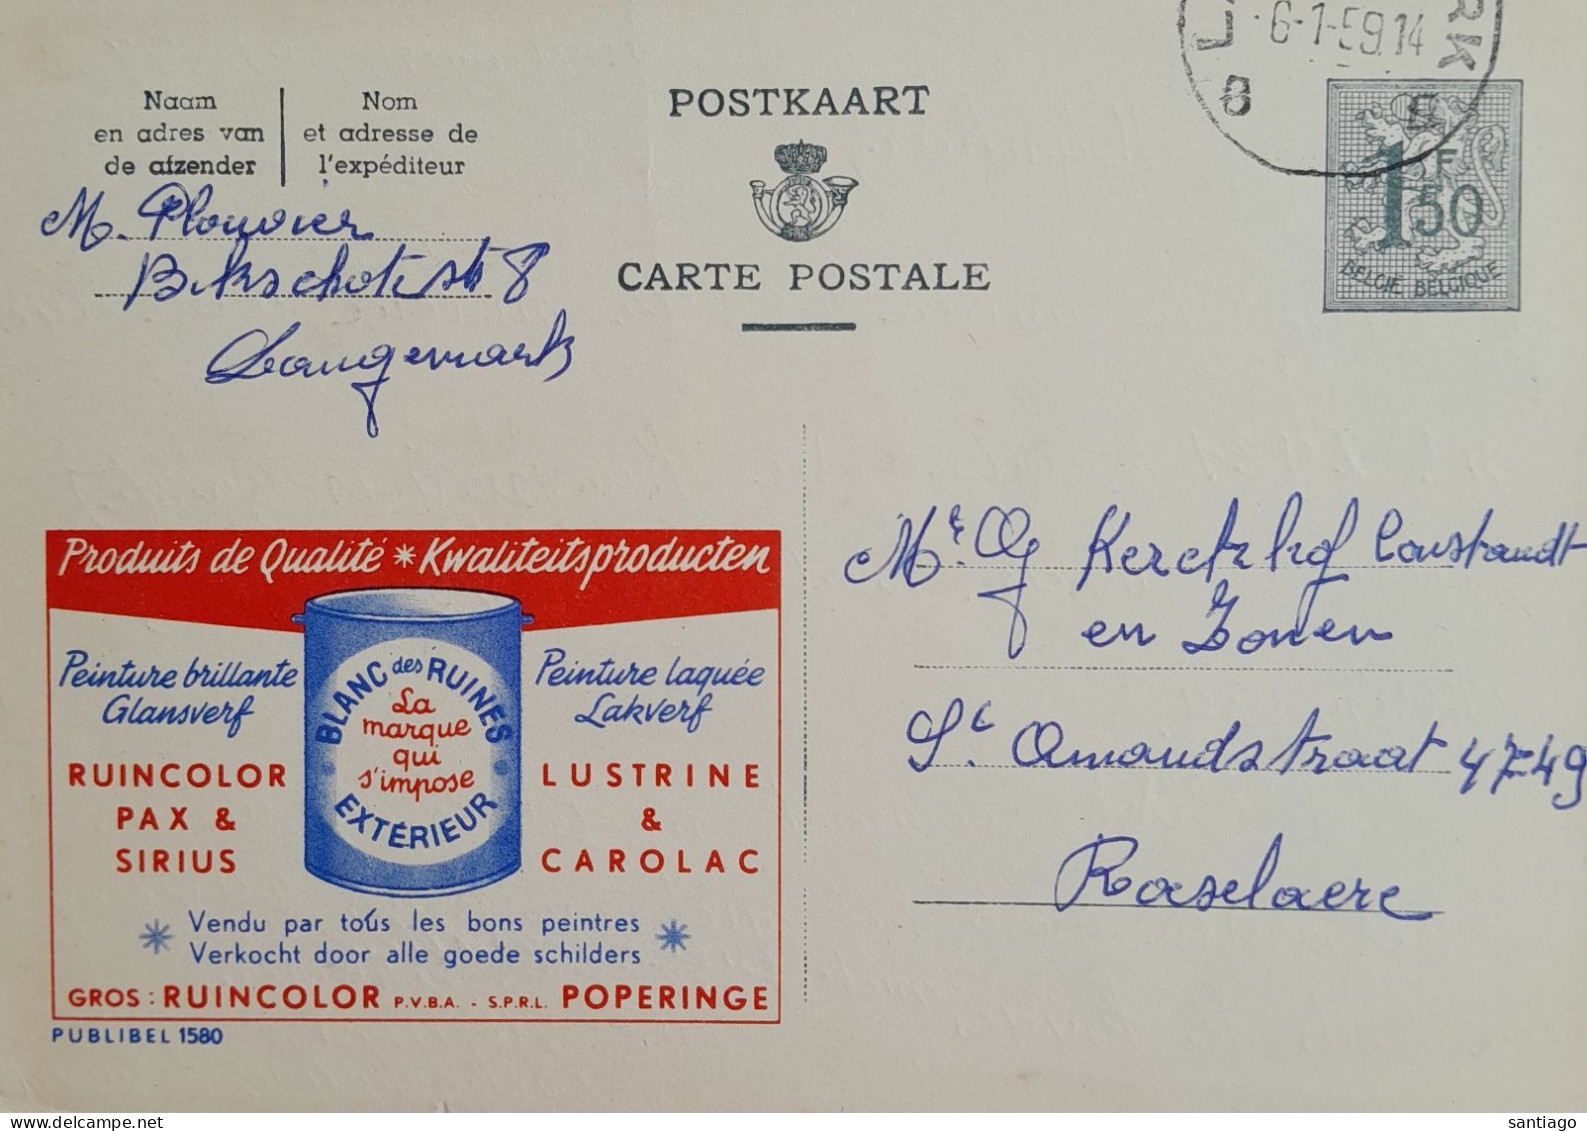 Naam
en adres van
de afzender
Nom
et adresse de
l'expéditeur
POSTKAART
CARTE POSTALE
6-1-59.14
RK
8
1F50
BELGIË BELGIQUE
M. Plouvier
Bikschotestr 8
Langemark
Produits de Qualité * Kwaliteitsproducten
Peinture brillante
Glansverf
RUINCOLOR
PAX &
SIRIUS
BLANC des RUINES
La
marque
qui
s'impose
EXTÉRIEUR
Peinture laquée
Lakverf
LUSTRINE
&
CAROLAC
Vendu par tous les bons peintres
Verkocht door alle goede schilders
GROS : RUINCOLOR P.V.B.A. - S.P.R.L. POPERINGE
PUBLIBEL 1580
Mr. G Kerckhof Constandt
en Zonen
St. Amandstraat 47-49
Roeselaere
santiago